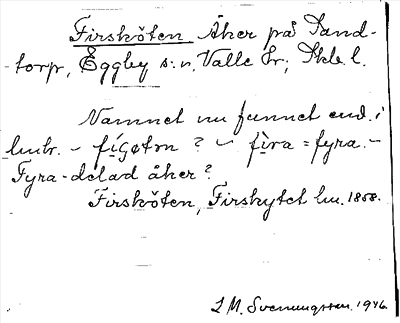 Firsköten Åker på Sand-
torp, Eggby s:n, Valle hr; Skb. l.
Namnet nu funnet end. i
lmtr. – fíǥøtṇ ? – fìra = fyra. –
Fyra-delad åker?
Firsköten, Firskytet lm. 1858.
L M. Svenungsson. 1946.